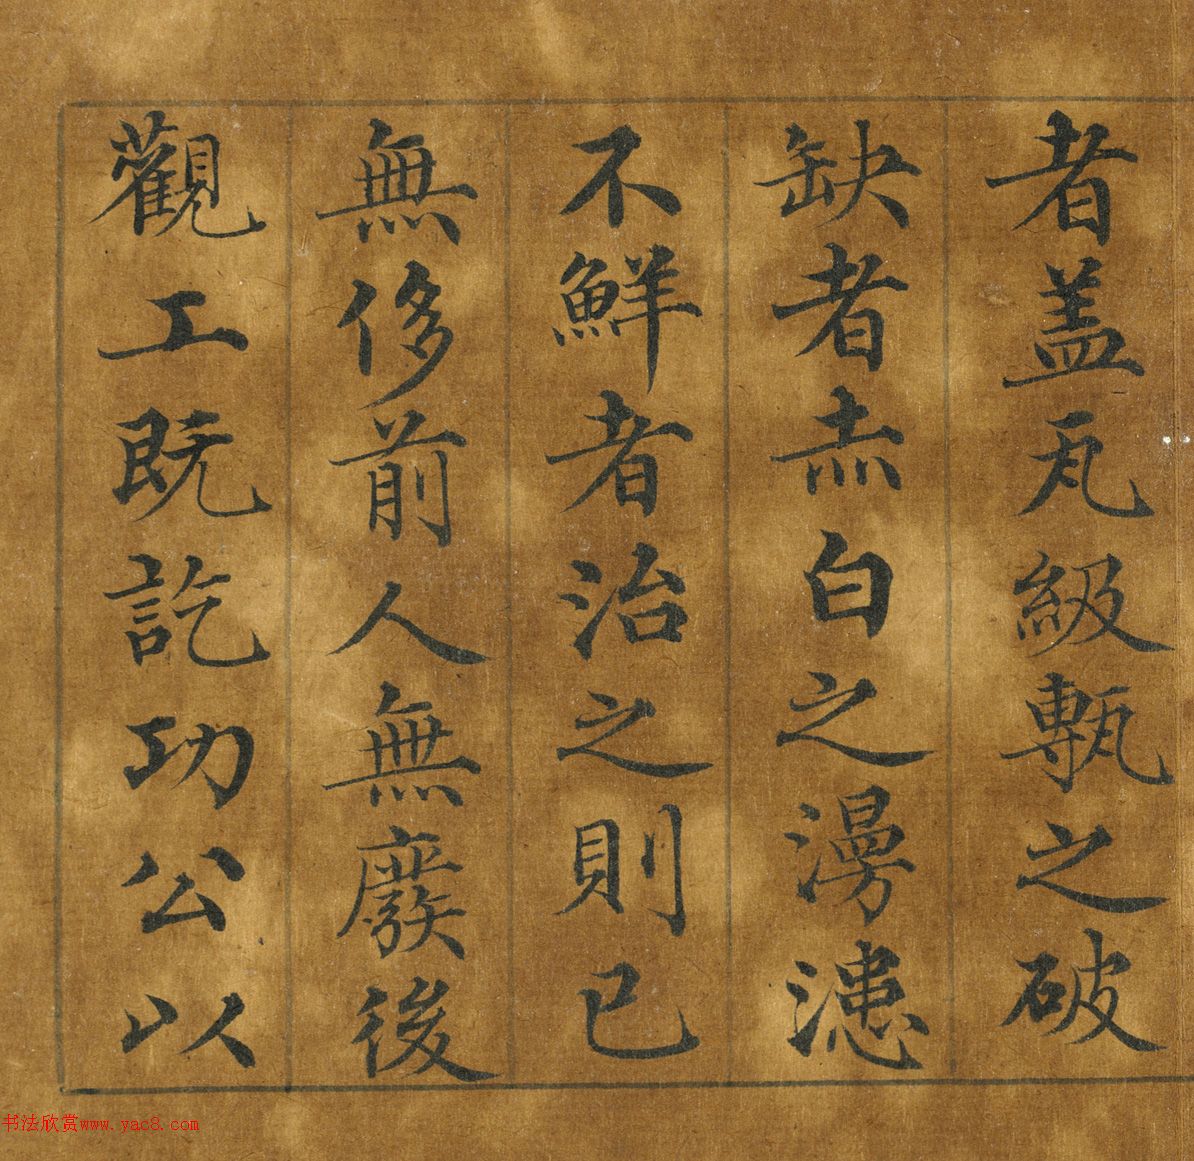 者盖瓦級甎之破
缺者赤白之漫漶
不鮮者治之則已
無侈前人無廢後
觀工既訖功公以
书法欣赏www.yac8.com